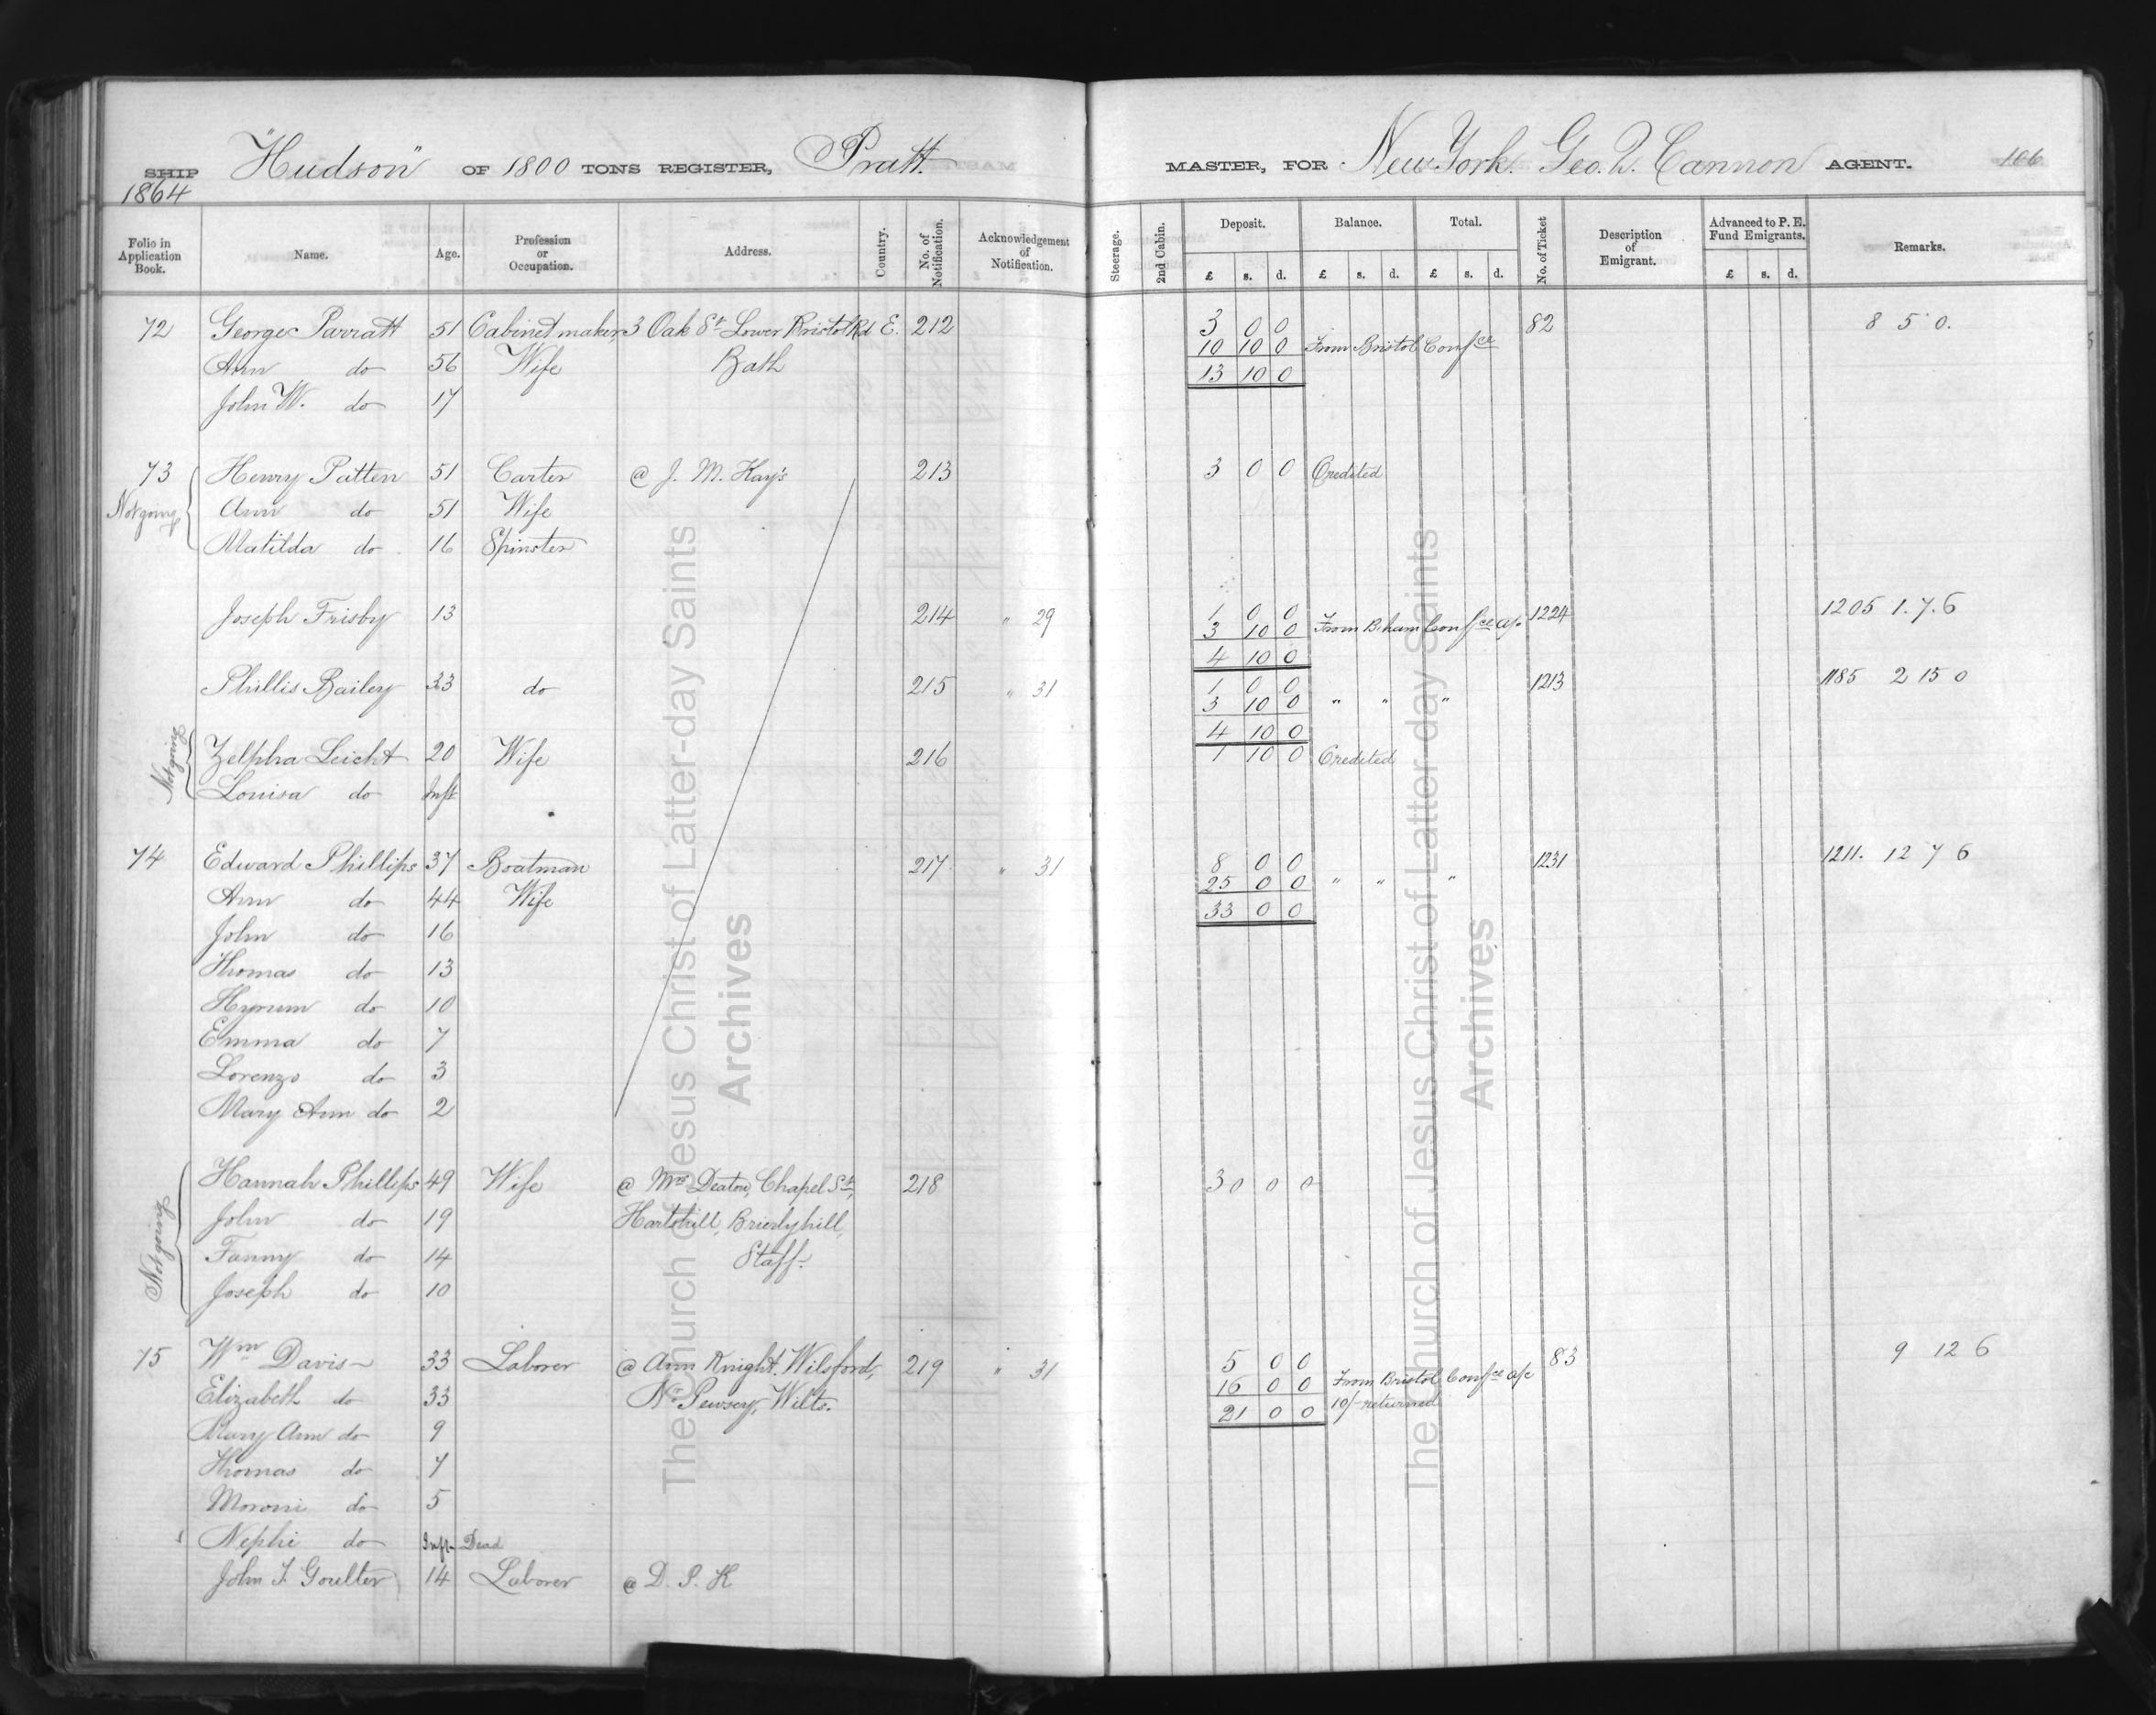 SHIP "Hudson" OF 1800 TONS REGISTER, Pratt. MASTER, FOR New York. Geo. Q. Cannon AGENT. 106
1864
Folio in Application Book. Name. Age. Profession or Occupation. Address. Country. No. of Notification. Acknowledgement of Notification. Steerage. 2nd Cabin. Deposit. £ s. d. Balance. £ s. d. Total. £ s. d. No. of Ticket Description of Emigrant. Advanced to P. E. Fund Emigrants. £ s. d. Remarks.
72 George Parratt 51 Cabinet maker, 3 Oak St. Lower Bristol Rd E. 212 3 0 0 82 8 5 0.
10 10 0 From Bristol Confce
Ann do 56 Wife Bath
13 10 0
John W. do 17
73 Henry Patten 51 Carter @ J. M. Kay's 213 3 0 0 Credited
Not going Ann do 51 Wife
Matilda do 16 Spinster
Joseph Frisby 13 214 " 29 1 0 0 1224 1205 1.7.6
3 10 0 From B.ham Confce a/c
4 10 0
Phillis Bailey 33 do 215 " 31 1 0 0 1213 1185 2 15 0
3 10 0 " " "
4 10 0
Not going Zelpha Leicht 20 Wife 216 1 10 0 Credited
Louisa do Inft
74 Edward Phillips 37 Boatman 217 " 31 8 0 0 1231 1211. 12 7 6
25 0 0 " " "
Ann do 44 Wife
33 0 0
John do 16
Thomas do 13
Hyrum do 10
Emma do 7
Lorenzo do 3
Mary Ann do 2
Hannah Phillips 49 Wife @ Mrs Deaton, Chapel St, 218 30 0 0
Not going John do 19 Hartshill, Brierlyhill,
Fanny do 14 Staff.
Joseph do 10
75 Wm Davis 33 Laborer @ Ann Knight. Wilsford, 219 " 31 5 0 0 83 9 12 6
16 0 0 From Bristol Confce a/c
Elizabeth do 33 Nr Pewsey, Wilts.
21 0 0 10/- returned
Mary Ann do 9
Thomas do 7
Moroni do 5
Nephi do Inft Dead
John F. Goulter 14 Laborer @ D. P. K
The Church of Jesus Christ of Latter-day Saints
Archives
The Church of Jesus Christ of Latter-day Saints
Archives